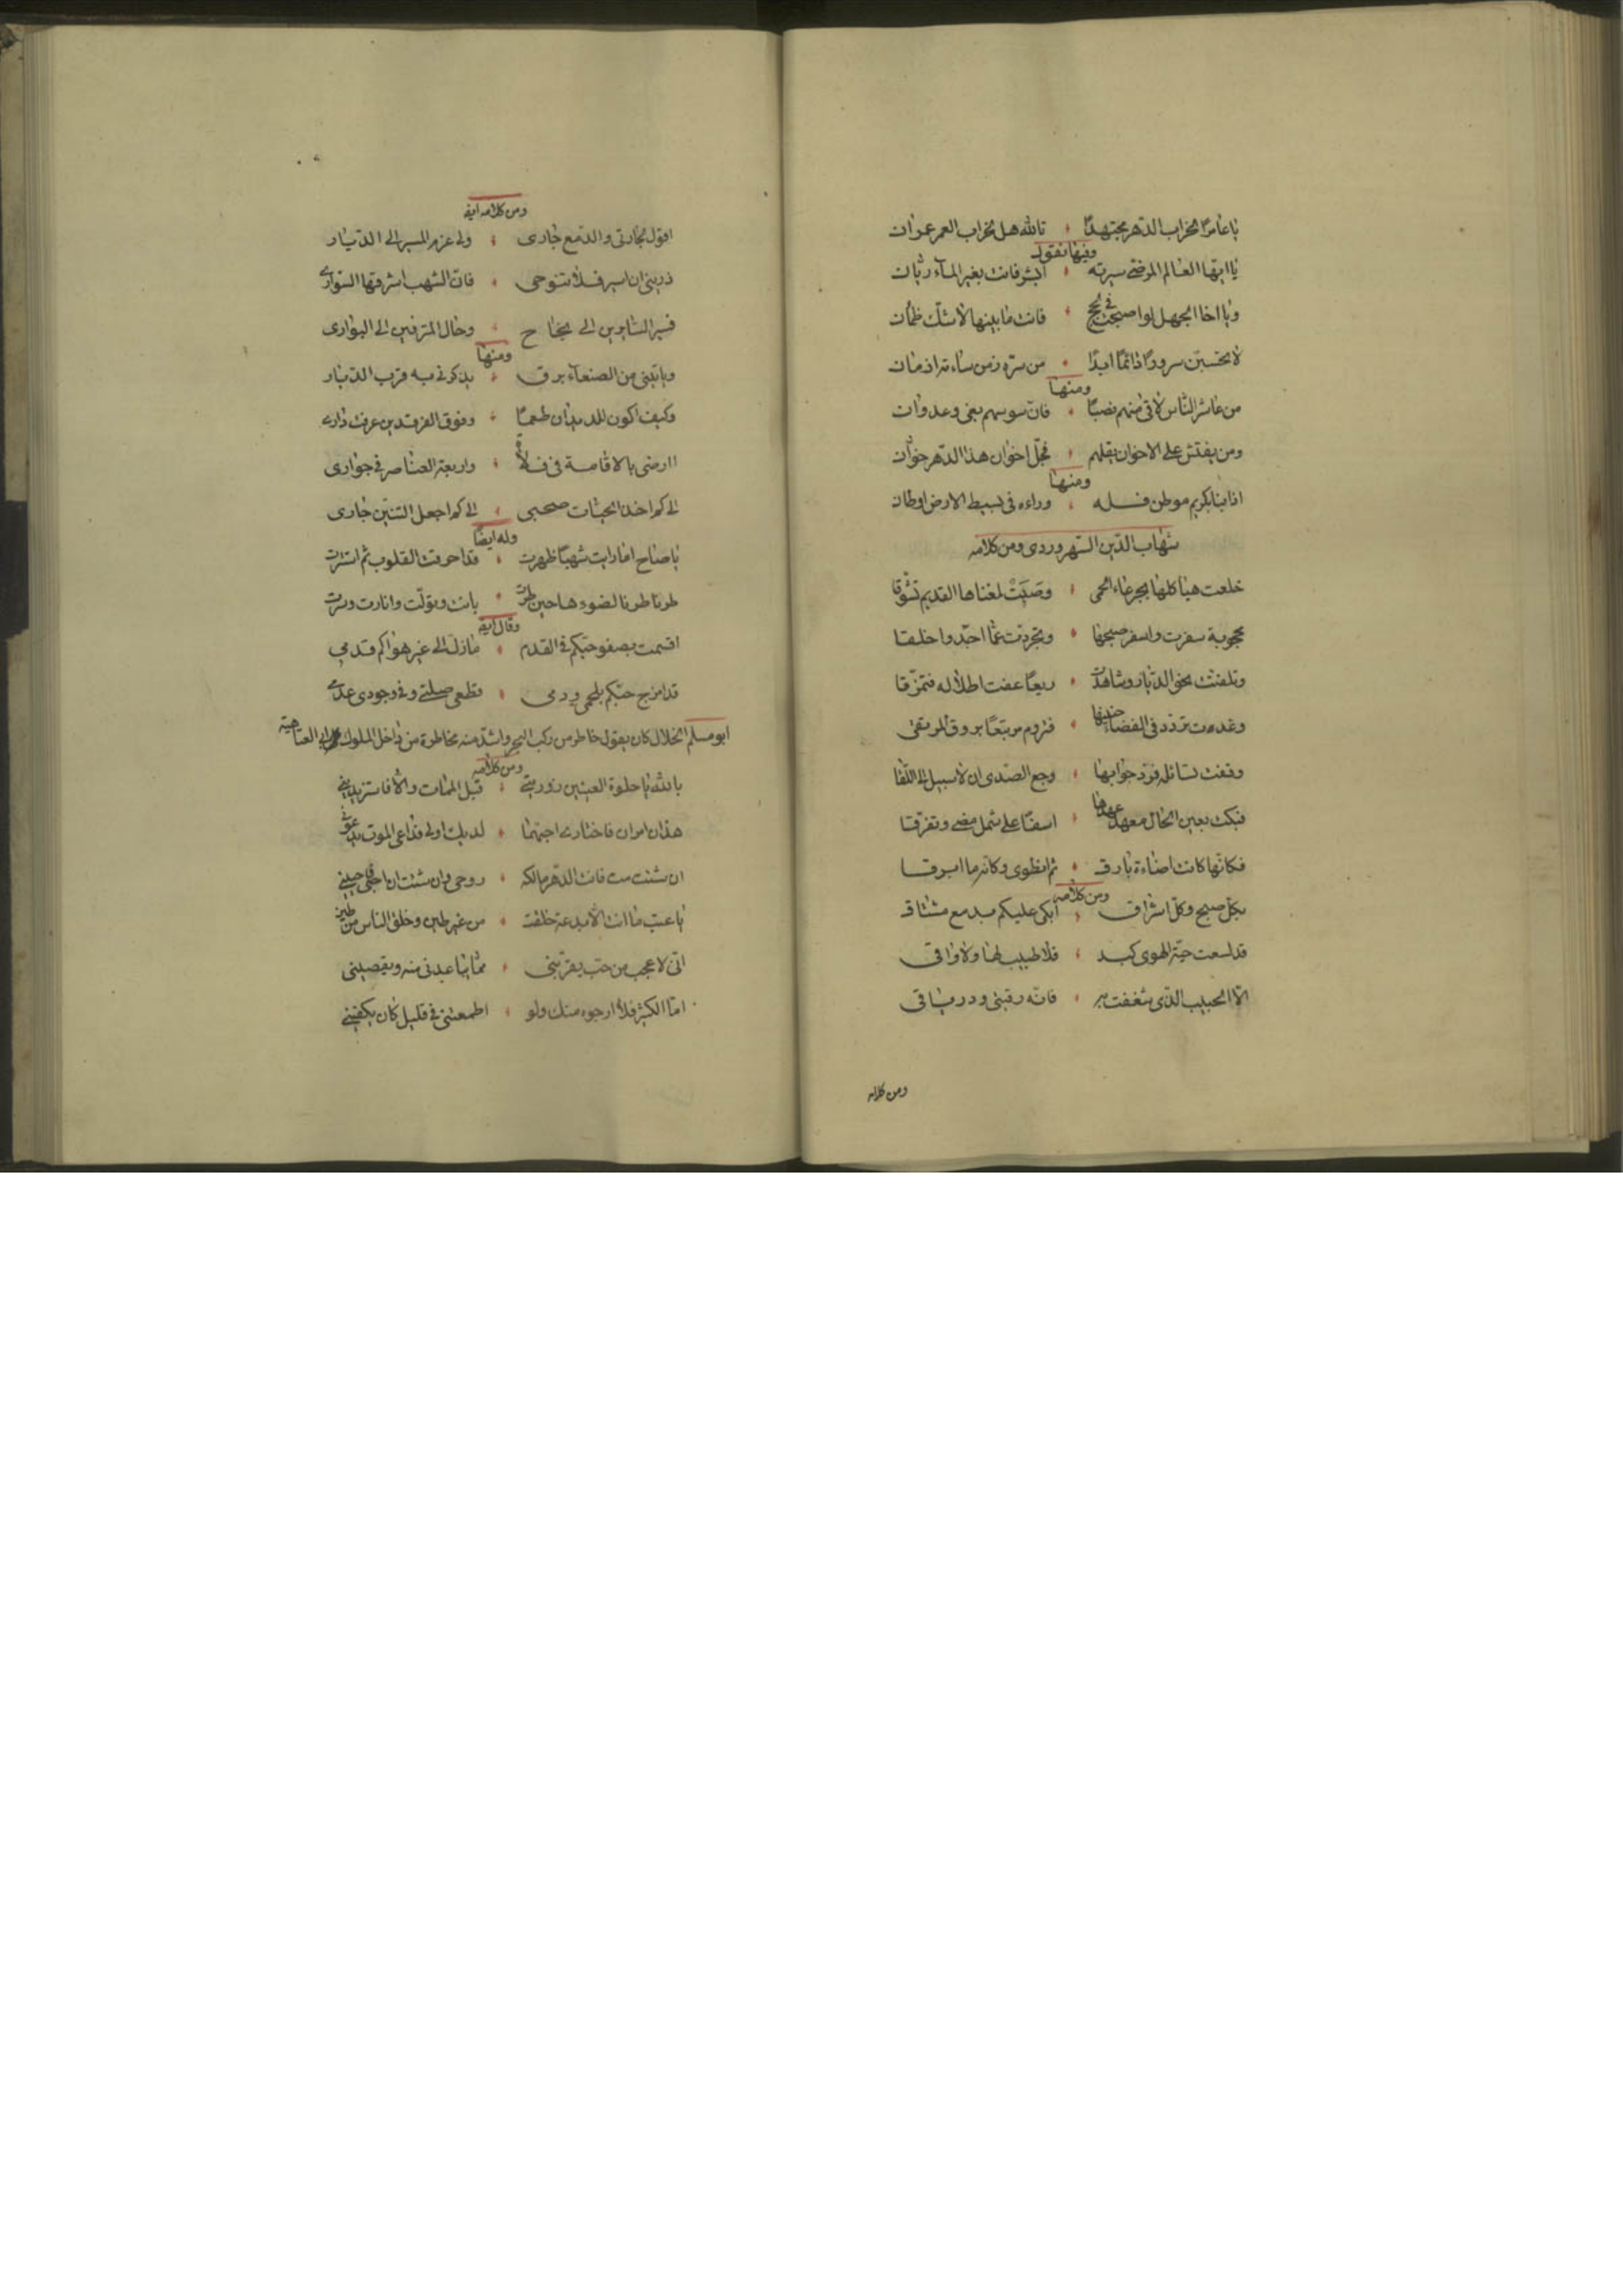 يا عامرًا لخراب الدهر مجتهدًا تالله هل لخراب العمر عمران
وفيها نقول
يا ايها العالم المرضي سيرته ابشر فانت بغير المآء ريان
ويا اخا الجهل لو اصبحت في لجج فانت ما بينها لا شك ظمآن
لا تحسبن سرورًا دائمًا ابدًا من سره زمن سائته ازمان
ومنها
من عاشر الناس لاقى منهم نصبًا فان سوسهم بغي وعدوان
ومن يفتش على الاخوان يقلهم فجل اخوان هذا الدهر خوان
ومنها
اذا نبا بكريم موطن فله وراءه في بسيط الارض اوطان
شهاب الدين السهروردي ومن كلامه
خلعت هياكلها بجرعاء الحمى وصبت لمغناها القديم تشوقا
محجوبة سفرت واسفر صبحها وتجردت عما اجد واخلقا
وتلفتت نحو الديار وشاهدت ربعًا عفت اطلاله فتمزقا
وغدت تردد في الفضاء حنينها فتروم مرتبعًا بروق المرتقى
وقفت تسائله فرد جوابها رجع الصدى ان لا سبيل الى اللقا
فبكت بعين الحال معهد عهدها اسفًا على شمل مضى وتفرقا
فكانها كانت اضاءة بارق ثم انطوى وكانه ما ابرقا
ومن كلامه
بكل صبح وكل اشراق ابكي عليكم بدمع مشتاق
قد لسعت حية الهوى كبد فلا طبيب لها ولا راقي
الا الحبيب الذي شغفت به فانه رقيتي ودرياقي
ومن كلامه
ومن كلامه ايضا
اقول لجارتي والدمع جاري ولي عزم المسير الى الديار
ذريني ان اسير فلا تنوحي فان الشهب اشرقها السواري
فسير السايرين الى نجاح وحال المترفين الى البواري
ومنها
وياتيني من الصنعآء برق يذكرني به قرب الديار
وكيف اكون للديدان طعمًا وفوق الفرقدين عرفت داري
اارضى بالاقامة في فلاة واربعة العناصر في جواري
الى كم اخذ الحيات صحبي الى كم اجعل التنين جاري
وله ايضًا
يا صاح اما رايت شهبًا ظهرت قد احرقت القلوب ثم استترت
طرنا طربا لضوءها حين طرت بانت وتولت وانارت وسرت
وقال ايضا
اقسمت بصفو حبكم في القدم ما زل الى غير هواكم قدمي
قد امزج حبكم بلحمي ودمي قطعي صلتي وفي وجودي عدمي
ابو مسلم الخلال كان يقول خاطر من ركب البحر واشد منه مخاطرة من داخل الملوك ابو العتاهية
ومن كلامه
بالله يا حلوة العينين زوريني قبل الممات والا فاستزيريني
هذان امران فاختاري احبهما لديك اولى فداعي الموت يدعوني
ان شئت مت فانت الدهر مالكة روحي وان شئت ان احيى فاحييني
يا عتب ما انت الا بدعة خلقت من غير طين وخلق الناس من طين
اني لاعجب من حب يقربني مما يباعدني منه ويقصيني
اما الكثير فلا ارجوه منك ولو اطمعتني في قليل كان يكفيني